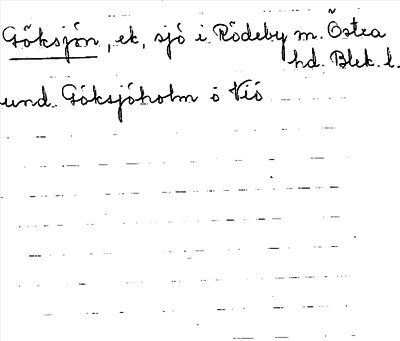 Göksjön, ek, sjö i Rödeby m. Östra
hd. Blek. l.
und. Göksjöholm o Viö